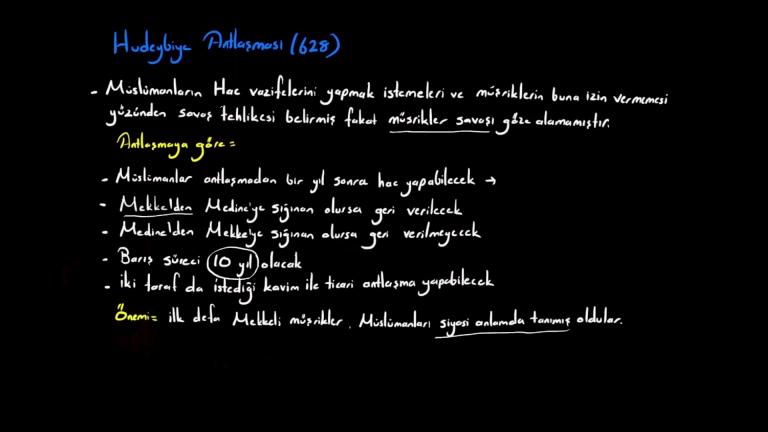 Hudeybiye Antlaşması (628)
- Müslümanların Hac vazifelerini yapmak istemeleri ve müşriklerin buna izin vermemesi
yüzünden savaş tehlikesi belirmiş fakat müşrikler savaşı göze alamamıştır.
Antlaşmaya göre =
- Müslümanlar antlaşmadan bir yıl sonra hac yapabilecek →
- Mekke'den Medine'ye sığınan olursa geri verilecek
- Medine'den Mekke'ye sığınan olursa geri verilmeyecek
- Barış süreci 10 yıl olacak
- İki taraf da istediği kavim ile ticari antlaşma yapabilecek
Önemi = ilk defa Mekkeli müşrikler, Müslümanları siyasi anlamda tanımış oldular.